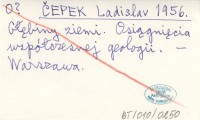 O? ČEPEK Ladislav 1956.
Głębiny ziemi. Osiągnięcia
współczesnej geologii. —
Warszawa.
BT/010/0250